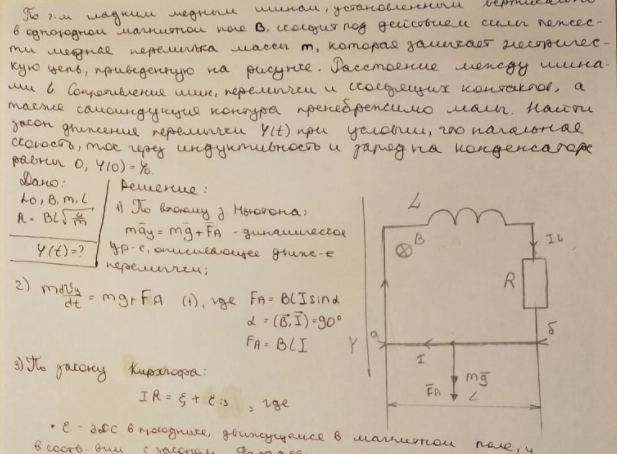 По г.м гладким медным шинам, установленным вертикально
в однородном магнитном поле B, скользит под действием силы тяжес-
ти медная перемычка массы m, которая замыкает электричес-
кую цепь, приведенную на рисунке. Расстояние между шина-
ми l. Сопротивление шин, перемычки и скользящих контактов, а
также самоиндукция контура пренебрежимо малы. Найти
закон движение перемычки Y(t) при условии, что начальная
скорость, ток через индуктивность и заряд на конденсаторе
равны 0, Y(0) = Y₀
Дано:
L₀, B, m, L
Y(t) = ?
Решение:
1) По второму з Ньютона:
māy = mḡ + F̄A - динамическое
ур-е, описывающее движ-е
перемычки;
2) mdVy/dt = mg + FA (1), где
FA = BLI sinα
α = (B⃗, I⃗) = 90°
FA = BLI
3) По закону Кирхгофа:
IR = ξ + ξis, где
• ξ - ЭДС в проводнике, движущемся в магнитном поле, и
в соотв-вии с законом
L
B
IL
R
Y
а
б
I
mḡ
F̄A
L